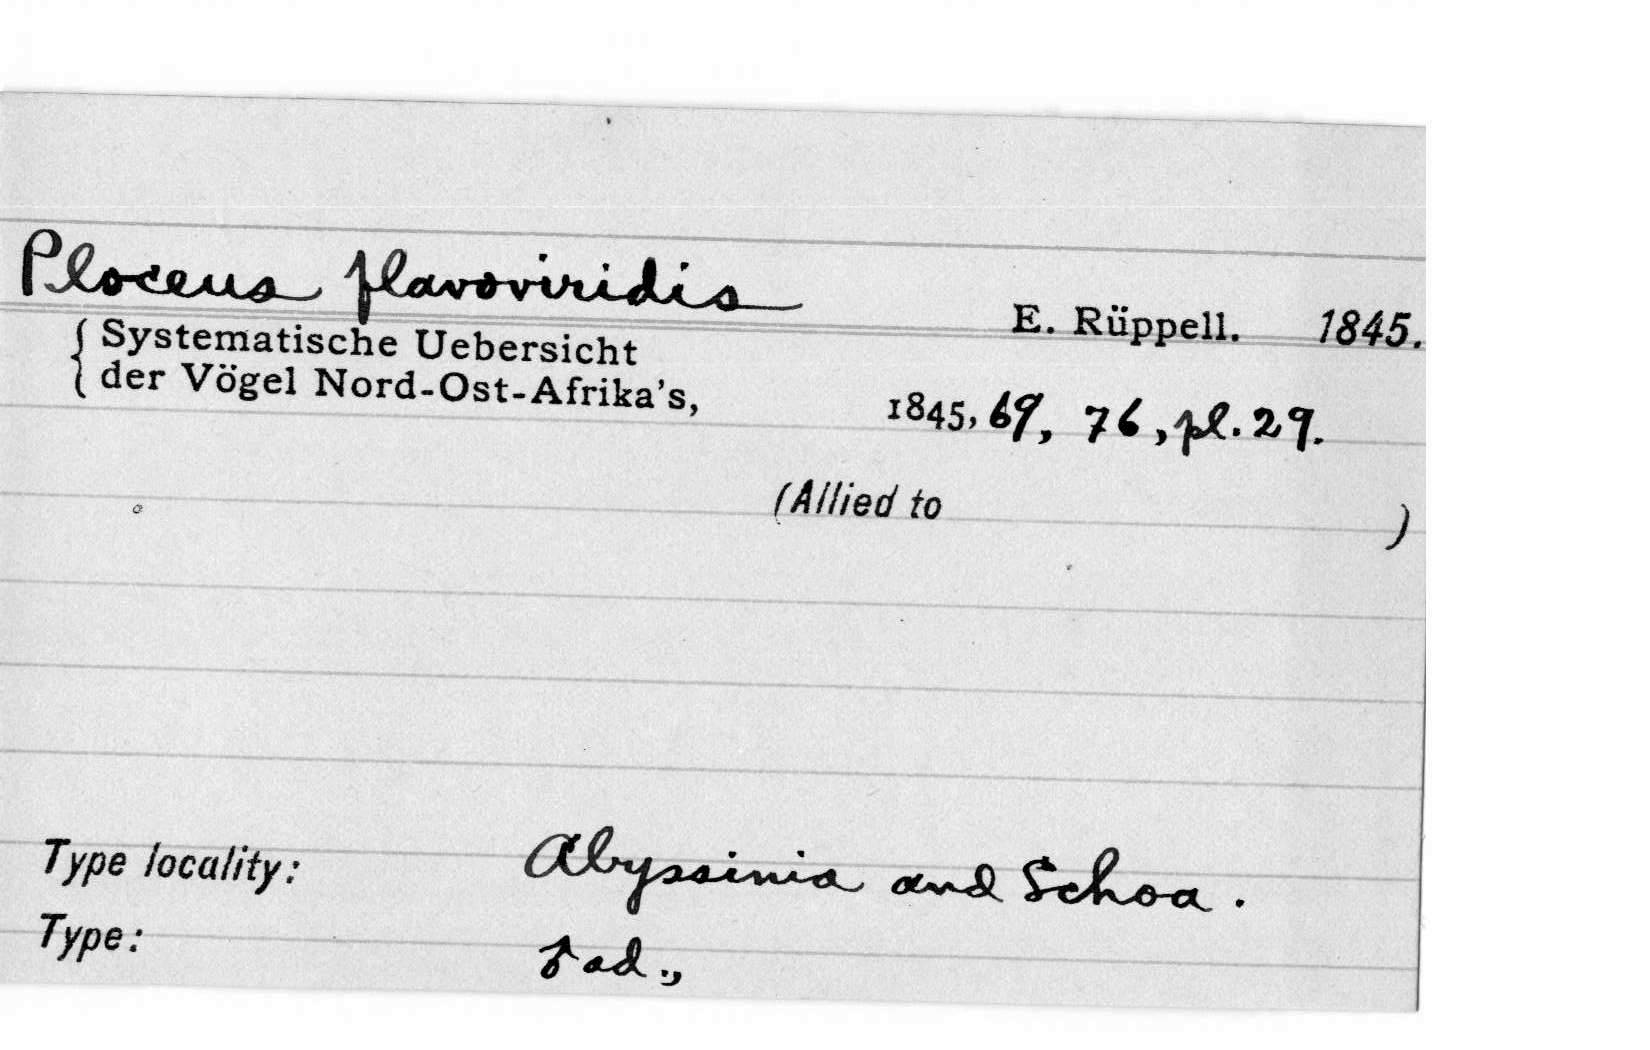 Ploceus flavoviridis
E. Rüppell. 1845.
{ Systematische Uebersicht
{ der Vögel Nord-Ost-Afrika's,
1845, 69, 76, pl. 29.
(Allied to )
Type locality: Abyssinia and Schoa.
Type: ♂ ad.,